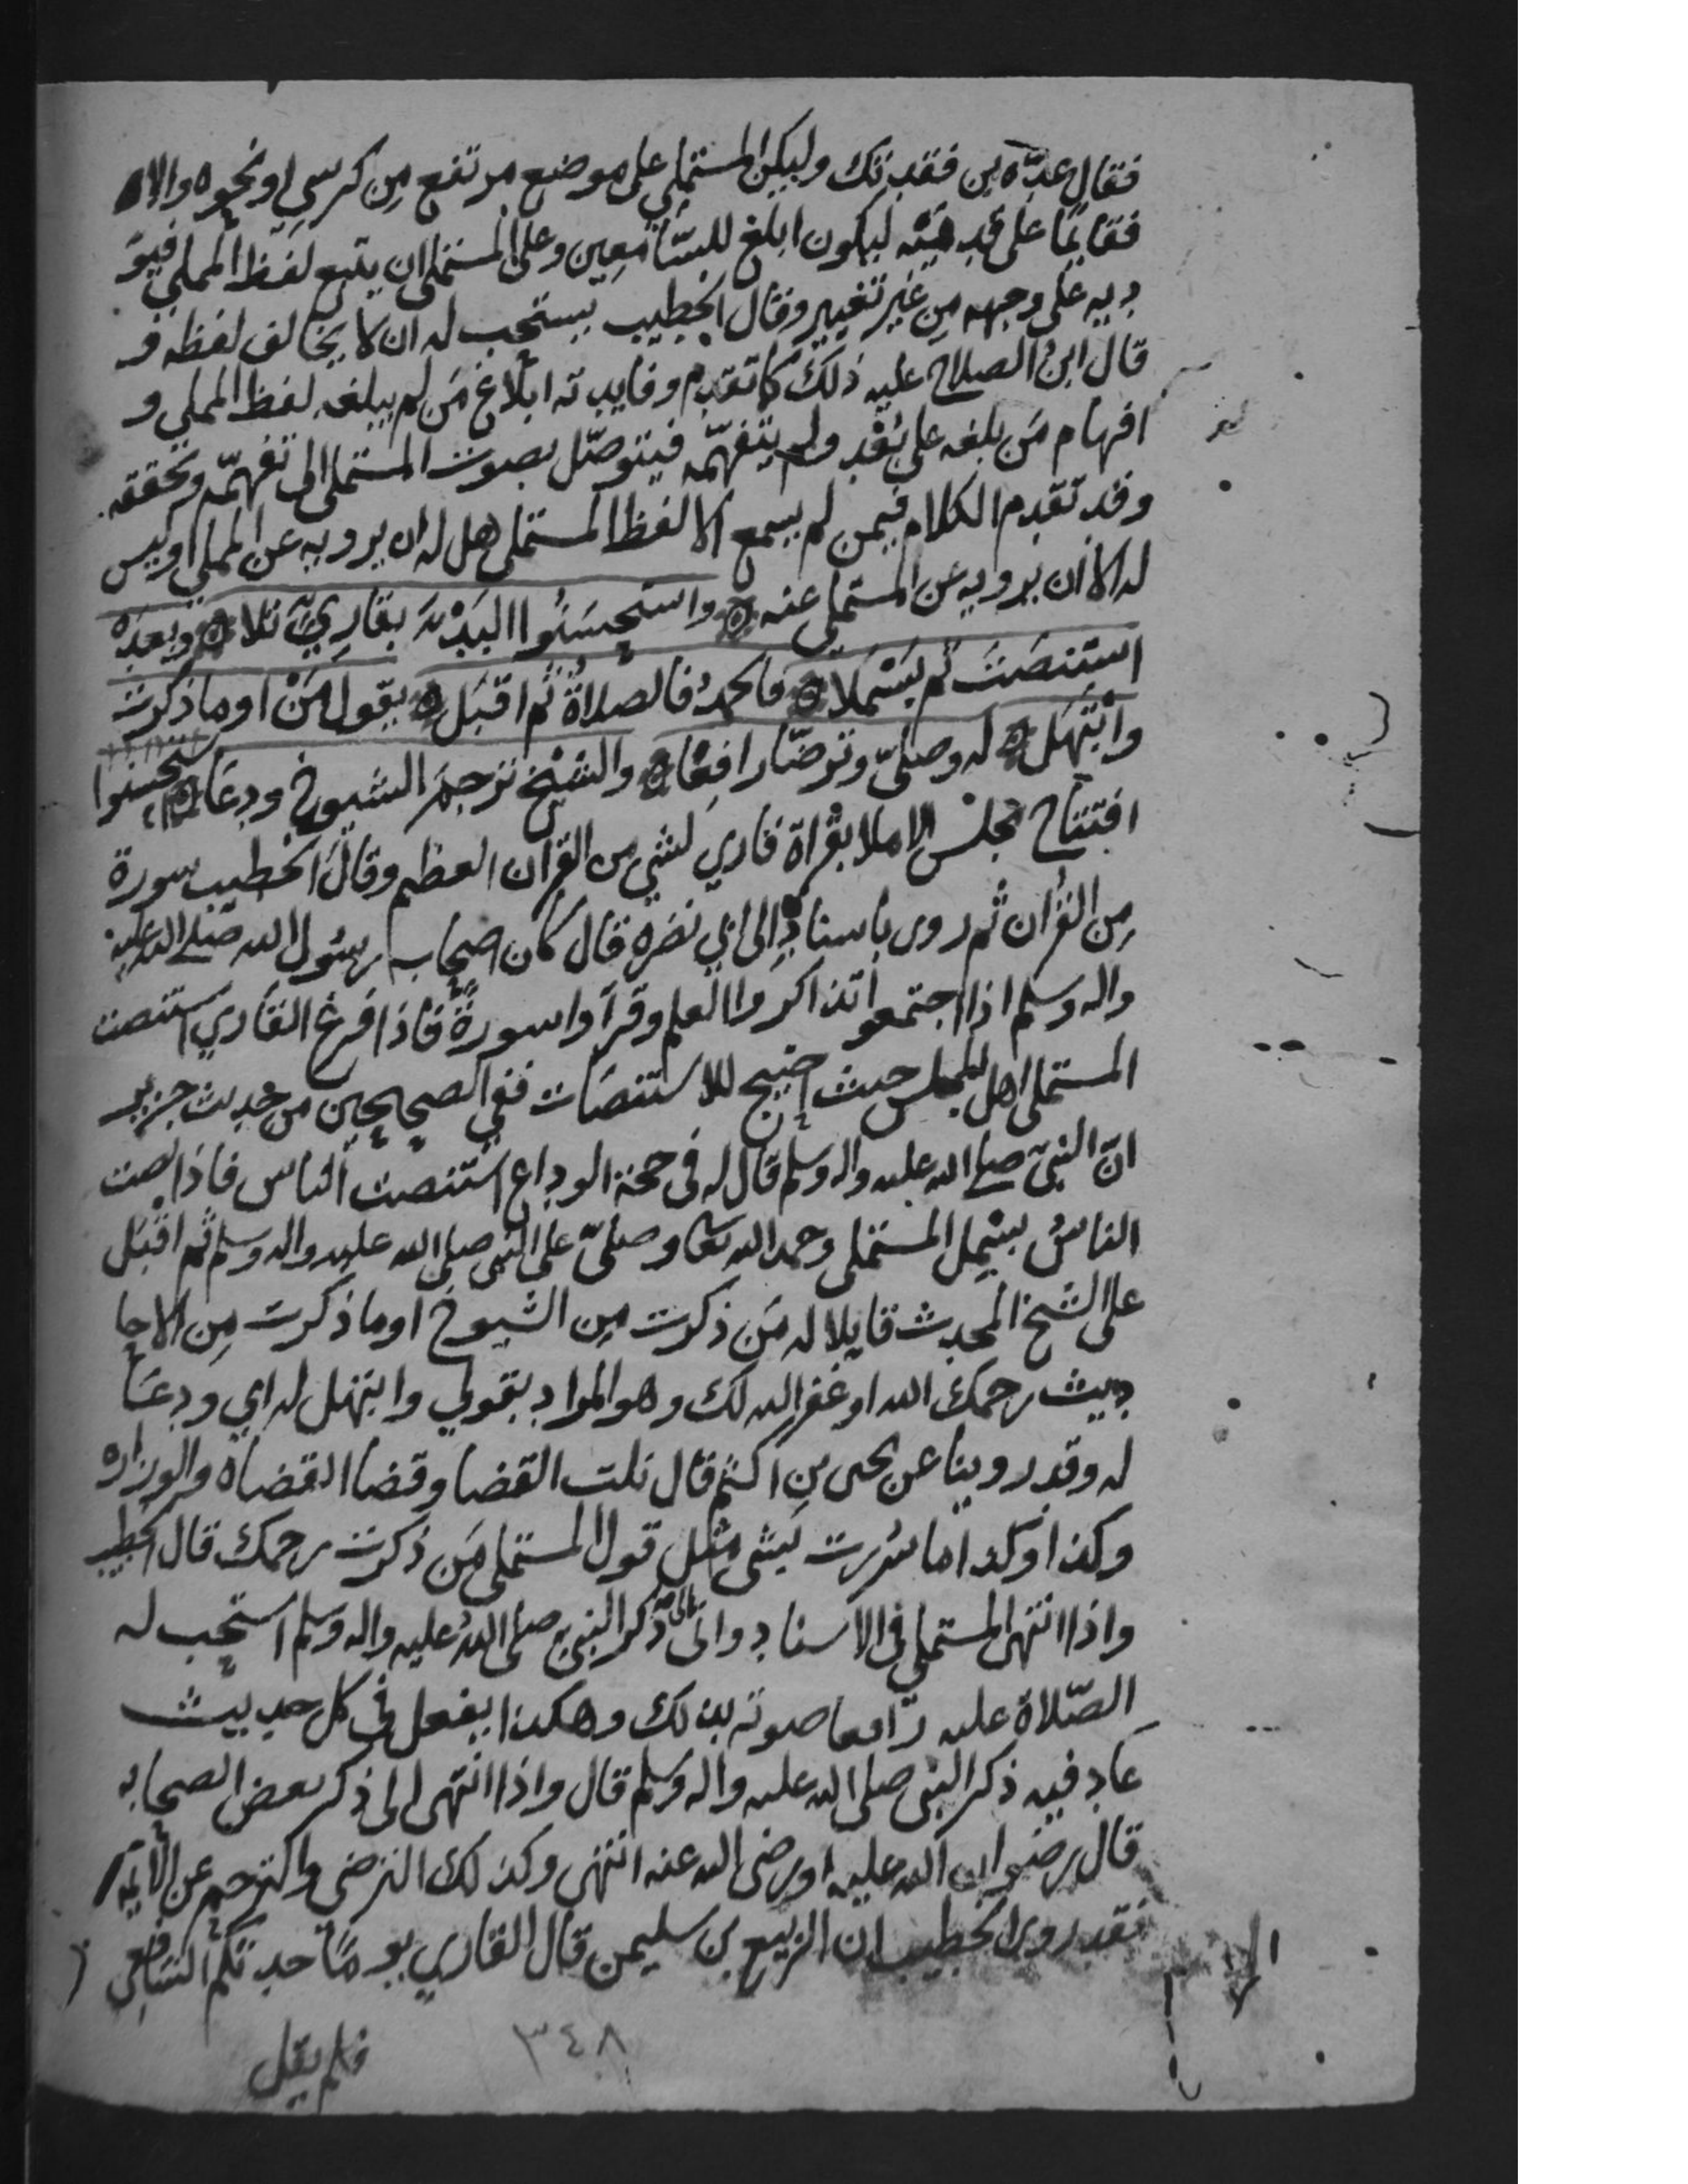 فقال عدّة بن فقدتك وليكن المستملي على موضع مرتفع من كرسي او نحوه والا
فقايمًا على قدميه ليكون ابلغ للسّامعين وعلى المستملي ان يتبع لفظ المملي فيؤ
ديه على وجهه من غير تغيير وقال الخطيب يستحب له ان لا يخالف لفظه و
قال ابن الصلاح عليه ذلك كما تقدم وفايدته ابلاغ من لم يبلغه لفظ المملي و
افهام من بلغه على بُعْد ولم يتفهّمه فيتوصّل بصوت المستملي الى تفهّمه وتحققه
وقد تقدم الكلام فيمن لم يسمع الا لفظ المستملي هل له ان يرويه عن المملي او ليس
له الا ان يرويه عن المستملي عنه ه واستحسَنُوا البَدْءَ بقارِيٍّ تلا ه وبعدَهُ
استنصَتَ ثم بَسْمَلا ه فالحمدُ فالصلاةُ ثم اقبَل ه يقول مَنْ او ما ذكرت
وابْتَهَل ه له وصلىّ وترضّا رافِعًا ه والشيْخ ترجمَ الشيوخ ودعَا ه استحسنوا
افتتاح مجلس الاملا بقراة قاري لشي من القران العظيم وقال الخطيب سورة
مِن القرُان ثم روى باسناده الى ابي نضره قال كان اصحاب رسُول الله صلى الله عليه
واله وسلم اذا اجتمعوا تذاكروا العلم وقرآوا سورةً فاذا فرغ القاري استنصت
المستملي اهل المجلس حيث احتيج للاستنصَات ففي الصحيحين من حديث جرير
انّ النبيّ صلى الله عليه واله وسلم قال له في حجة الوداع استنصت الناس فاذا نصت
الناسُ بسْمل المستملي وحمد الله تعا وصلىّ على النبي صلى الله عليه واله وسلم ثم اقبَل
على الشيخ المحدث قايلا له مَن ذكرت مِن الشيوخ او ما ذكرت مِن الاحا
ديث رحمك الله او غفر الله لك وهو المراد بقولي وابتهل له اي ودعَا
له وقد روينا عن يحيى بن اكثم قال نلت القضا وقضا القضاة والوزاره
وكذا وكذا ما سُررت بشي مثل قول المستملي مَن ذكرت رحمك قال الخطيب
واذا انتهى المستملي في الاسناد والى ذكر النبي صلى اللهُ عليه واله وسلم استحب له
الصّلاة عليه رَافعا صوته بذلك وهكذا يفعل في كل حديث
عاد فيه ذكر النبي صلى الله عليه واله وسَلم قال واذا انتهى الى ذكر بعض الصحابه
قال رضوان الله عليه او رضى الله عنه انتهى وكذلك الترضي والترحم عن الأيمة
فقد روى الخطيب ان الربيع بن سليمن قال القاري يومًا حدثكم الشافعي
فلم يقل
٣٤٨